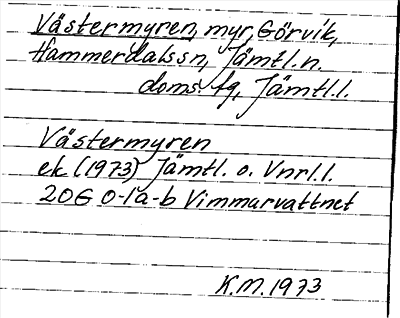 Västermyren, myr, Görvik,
Hammerdalssn, Jämtl.n.
doms. fg, Jämtl.l.
Västermyren
ek (1973) Jämtl. o. Vnrl.l.
20G 0-1a-b Vimmarvattnet
K.M. 1973